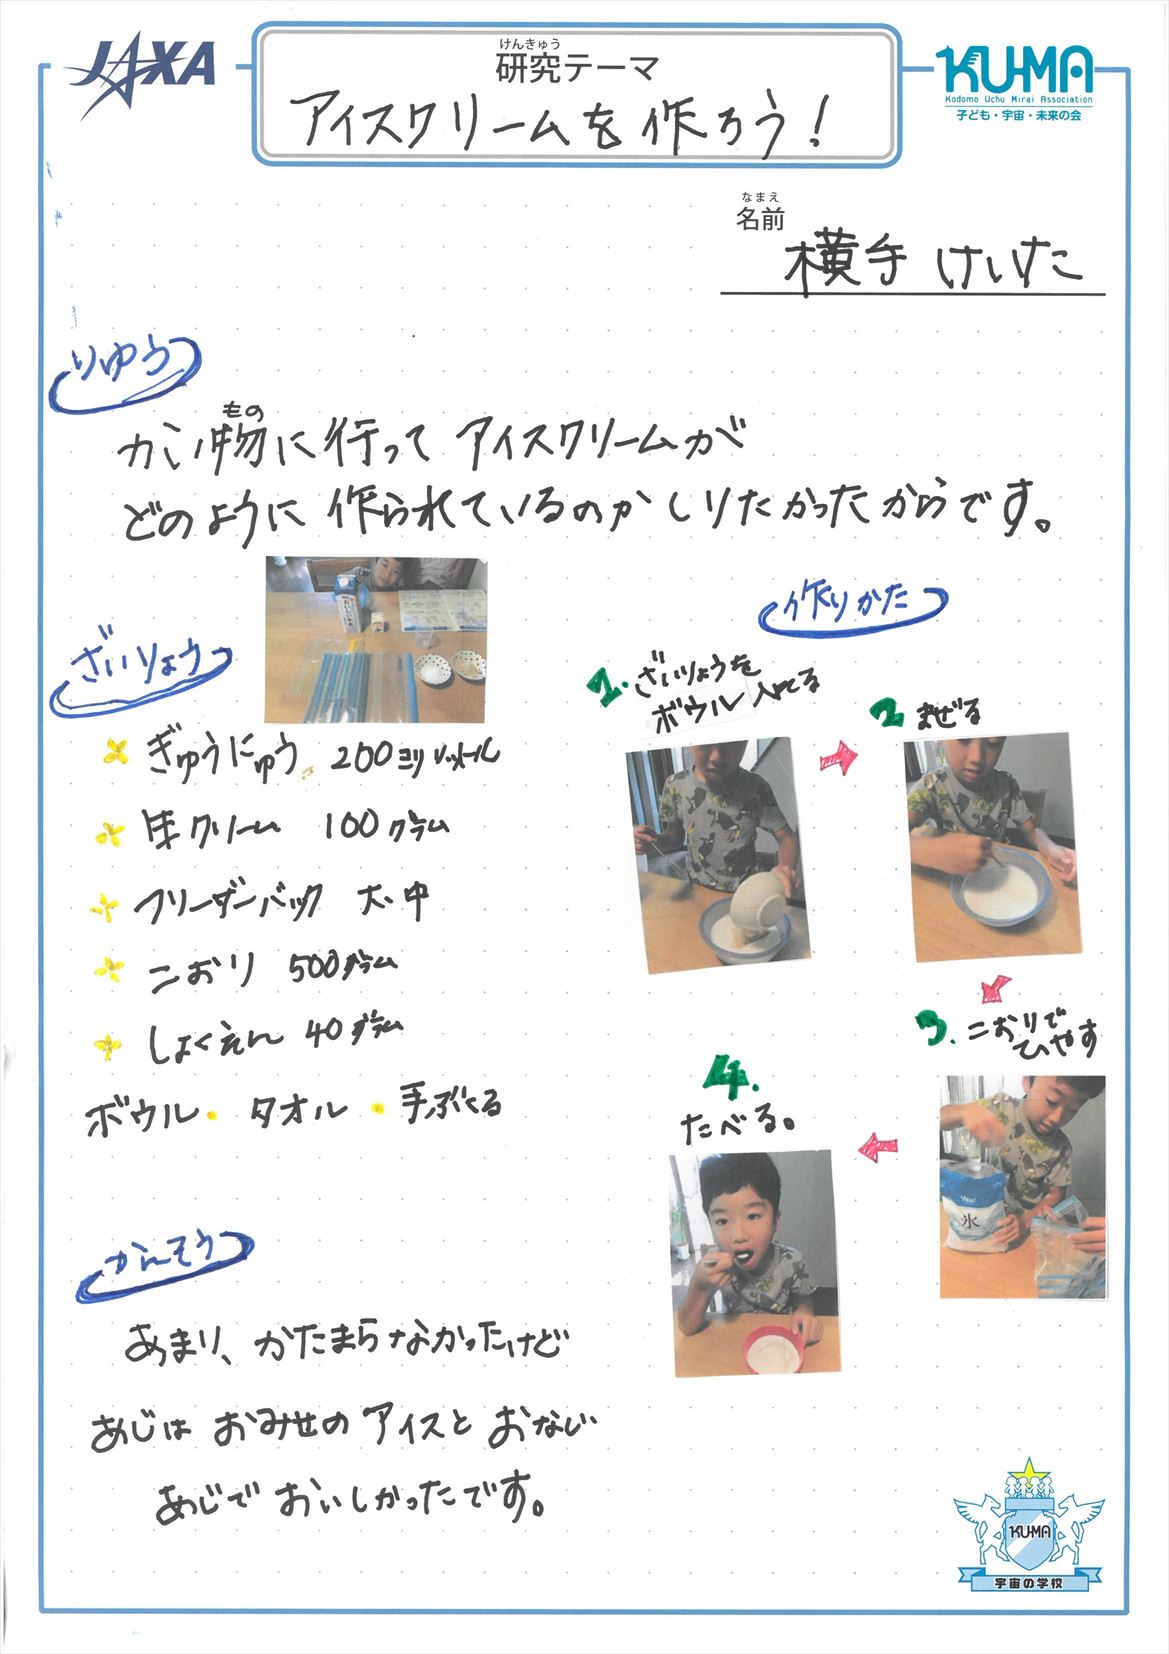 JAXA
けんきゅう
研究テーマ
アイスクリームを作ろう!
KU-MA
Kodomo Uchu Mirai Association
子ども・宇宙・未来の会
なまえ
名前
横手 けいすけ
りゆう
もの
かい物に行って アイスクリームが
どのように 作られているのか しりたかったからです。
ざいりょう
ぎゅうにゅう 200ミリリットル
生クリーム 100グラム
フリーザーバック 大・中
こおり 500グラム
しょくえん 40グラム
ボウル・ タオル・手ぶくろ
作りかた
1. ざいりょうを
ボウル入れる
2 まぜる
3. こおりで
ひやす
氷
4.
たべる。
かんそう
あまり、かたまらなかったけど
あじは おみせの アイスと おなじ
あじで おいしかったです。
KU-MA
宇宙の学校